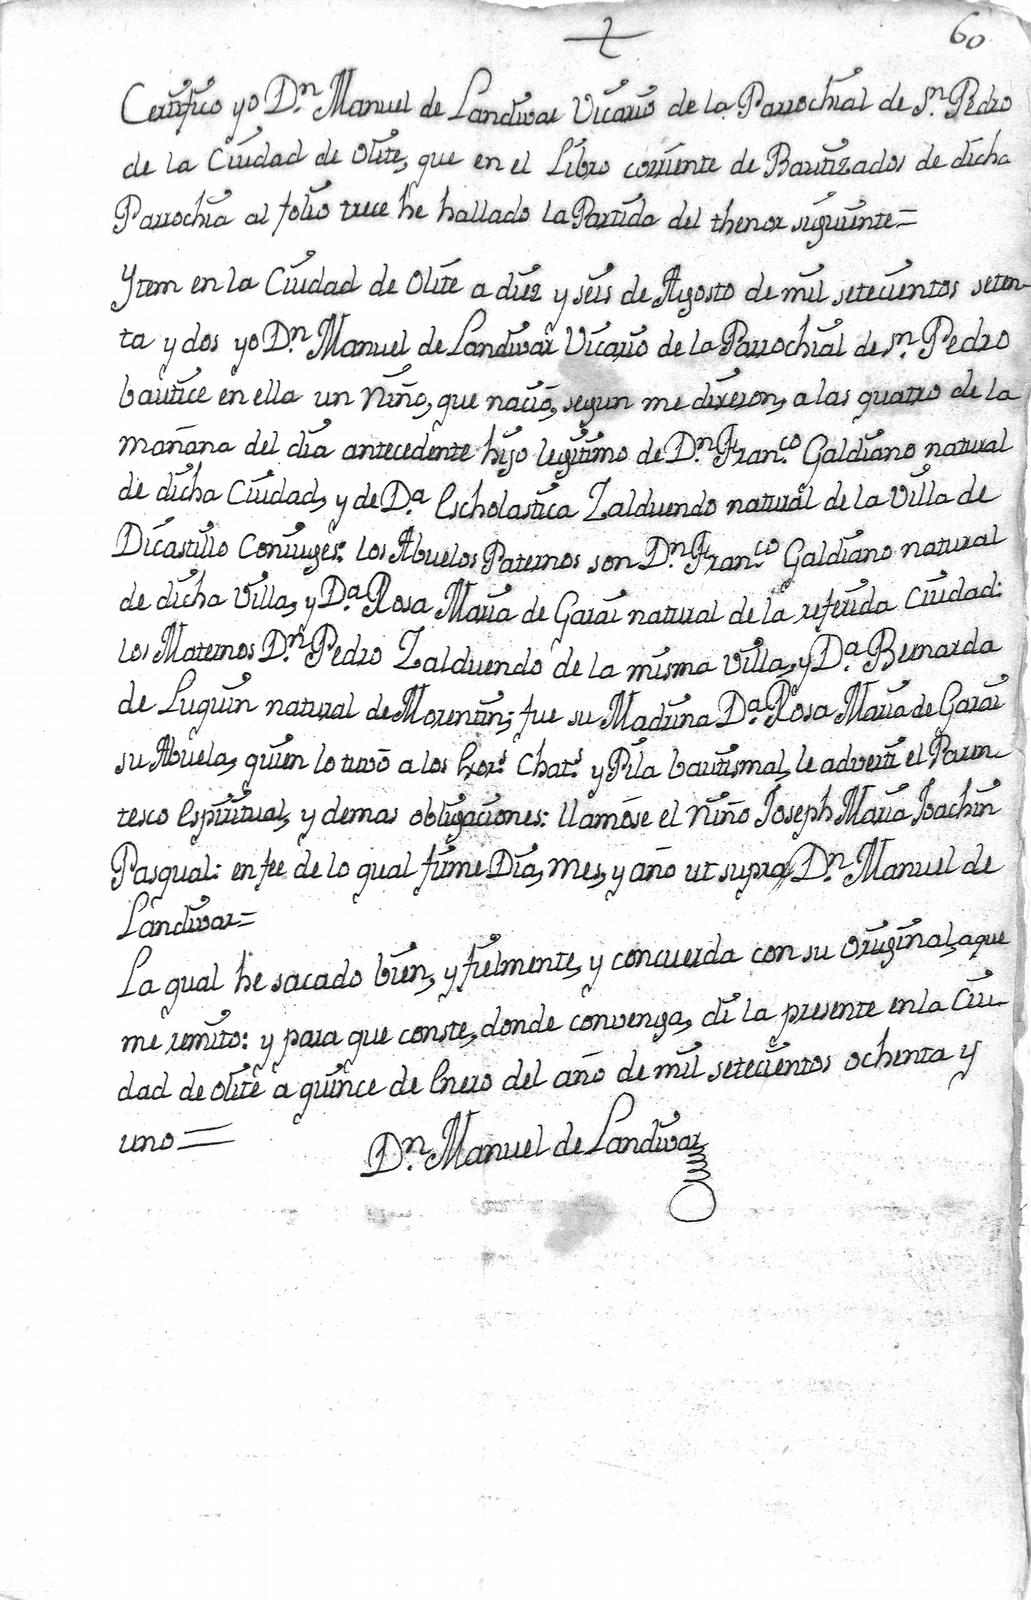 60
Certifico yo Dn. Manuel de Landivar Vicario de la Parrochial de Sn. Pedro
de la Ciudad de Olite, que en el Libro corriente de Bautizados de dicha
Parrochia al folio trece he hallado la Partida del thenor siguiente=
Ytem en la Ciudad de Olite a diez y seis de Agosto de mil setecientos seten-
ta y dos yo Dn. Manuel de Landivar Vicario de la Parrochial de Sn. Pedro
bauticé en ella un Niño, que nació, segun me dixeron, a las quatro de la
mañana del dia antecedente hijo legitimo de Dn. Fran.co Galdiano natural
de dicha Ciudad, y de Da. Escholastica Zalduendo natural de la Villa de
Dicastillo Coniuges: los Abuelos Paternos son Dn. Fran.co Galdiano natural
de dicha Villa, y Da. Rosa Maria de Garai natural de la referida Ciudad:
los Maternos Dn. Pedro Zalduendo de la misma Villa, y Da. Bernarda
de Luquin natural de Morentin; fue su Madrina Da. Rosa Maria de Garai
su Abuela, quien lo tuvo a los Exor.s Chat.s y Pila bautismal, le advertí el Paren-
tesco Espiritual, y demas obligaciones: llamóse el Niño Joseph Maria Joachin
Pasqual: en fee de lo qual firme Dia, Mes, y año ut supra, Dn. Manuel de
Landivar=
La qual he sacado bien, y fielmente, y concuerda con su original, a que
me remito: y para que conste, donde convenga, di la presente en la Ciu-
dad de Olite a quince de Enero del año de mil setecientos ochenta y
uno=
Dn. Manuel de Landivar